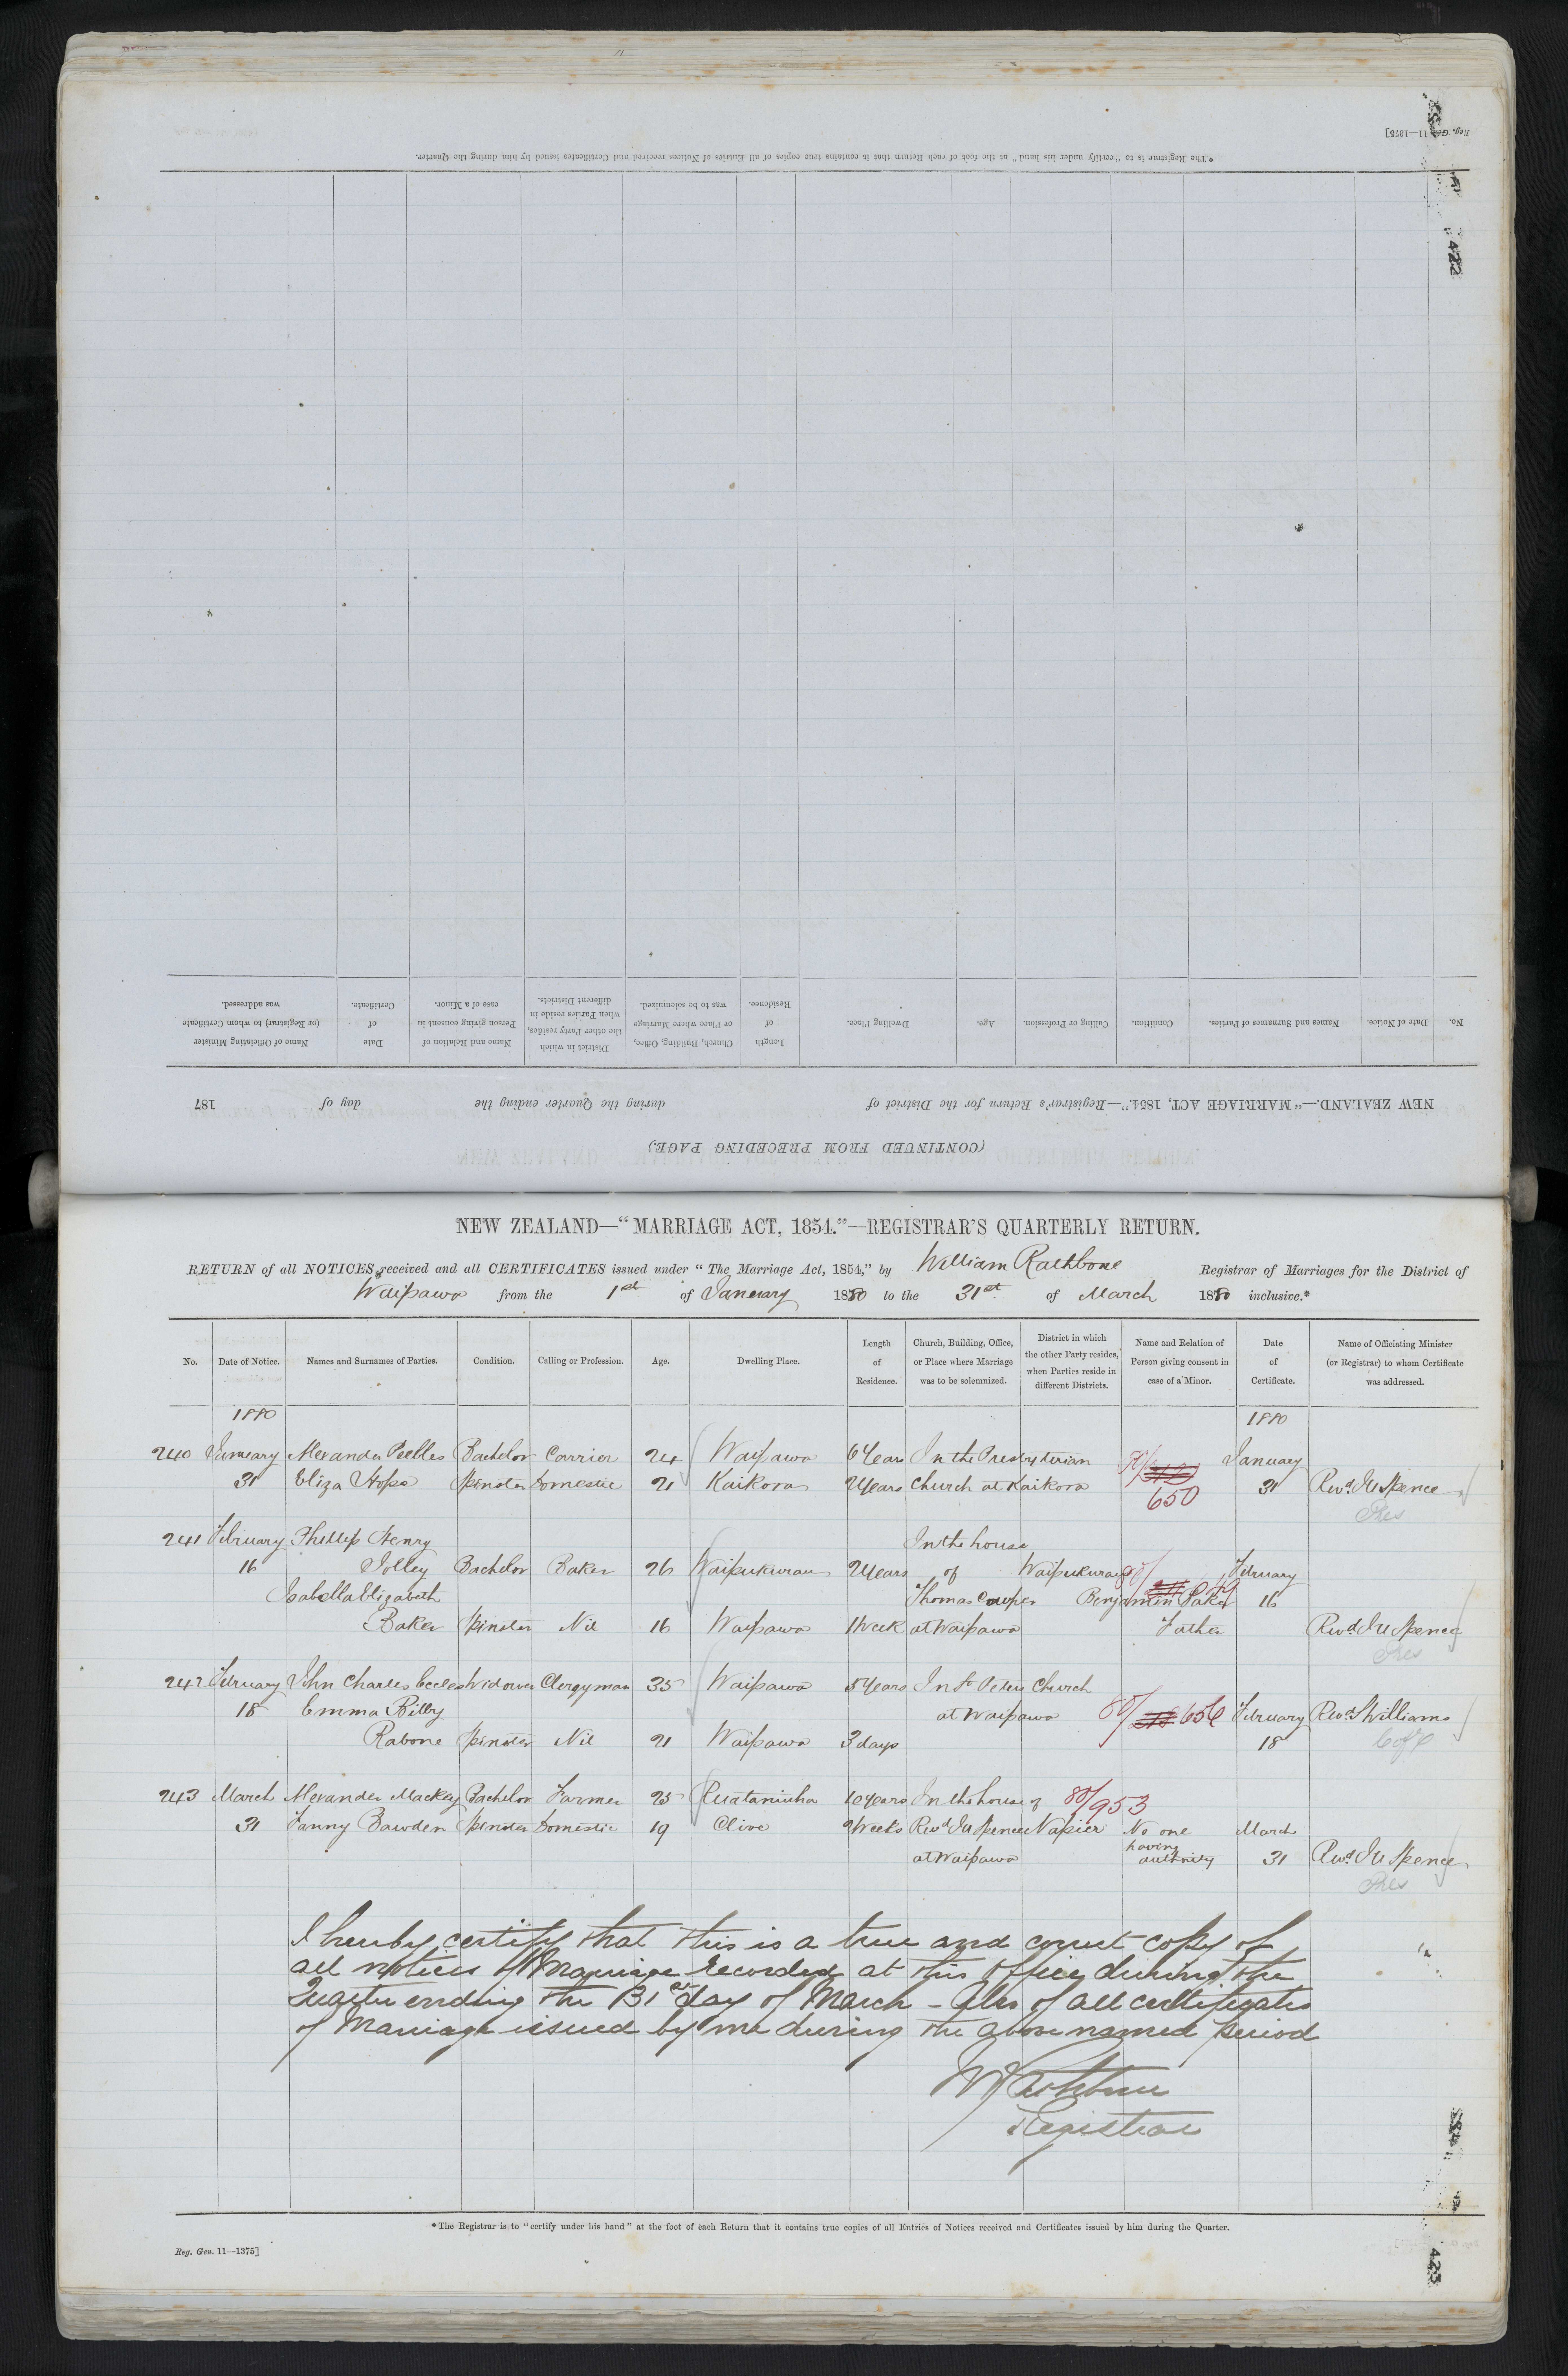 Reg. Gen. 11—1375]
*The Registrar is to "certify under his hand" at the foot of each Return that it contains true copies of all Entries of Notices received and Certificates issued by him during the Quarter.
422
(CONTINUED FROM PRECEDING PAGE.)
NEW ZEALAND.—"MARRIAGE ACT, 1854."—Registrar's Return for the District of during the Quarter ending the day of 187
No. Date of Notice. Names and Surnames of Parties. Condition. Calling or Profession. Age. Dwelling Place. Length of Residence. Church, Building, Office, or Place where Marriage was to be solemnized. District in which the other Party resides, when Parties reside in different Districts. Name and Relation of Person giving consent in case of a Minor. Date of Certificate. Name of Officiating Minister (or Registrar) to whom Certificate was addressed.
NEW ZEALAND—"MARRIAGE ACT, 1854."—REGISTRAR'S QUARTERLY RETURN.
RETURN of all NOTICES received and all CERTIFICATES issued under "The Marriage Act, 1854," by William Rathbone Registrar of Marriages for the District of
Waipawa from the 1st of January 1880 to the 31st of March 1880 inclusive.*
No. Date of Notice. Names and Surnames of Parties. Condition. Calling or Profession. Age. Dwelling Place. Length of Residence. Church, Building, Office, or Place where Marriage was to be solemnized. District in which the other Party resides, when Parties reside in different Districts. Name and Relation of Person giving consent in case of a Minor. Date of Certificate. Name of Officiating Minister (or Registrar) to whom Certificate was addressed.
1880 1880
240 January Alexander Peebles Bachelor Carrier 24 Waipawa 6 Years In the Presbyterian 80/ January
31 Eliza Hope Spinster Domestic 21 Kaikora 2 Years Church at Kaikora 650 31 Revd. Spence
Pres
241 February Phillip Henry In the house
16 Jolley Bachelor Baker 26 Waipukurau 2 Years of Waipukurau 80/ February
Isabella Elizabeth Thomas Cowper Benjamin Baker 16
Baker Spinster Nil 16 Waipawa 1 Week at Waipawa Father Revd. Spence
Pres
242 February John Charles Eccles Widower Clergyman 35 Waipawa 5 Years In St Peters Church
18 Emma Bilby at Waipawa 80/ 656 February Revd S Williams
Rabone Spinster Nil 21 Waipawa 3 days 18 C of E
243 March Alexander Mackay Bachelor Farmer 25 Ruataniwha 10 Years In the house of 80/953
31 Fanny Bawden Spinster Domestic 19 Clive 2 Weeks Revd Spence Napier No one March
at Waipawa having authority 31 Revd. Spence
Pres
I hereby certify that this is a true and correct copy of
all notices of Marriage recorded at this Office during the
Quarter ending the 31st day of March – Also of all certificates
of Marriage issued by me during the above named period
W Rathbone
Registrar
*The Registrar is to "certify under his hand" at the foot of each Return that it contains true copies of all Entries of Notices received and Certificates issued by him during the Quarter.
Reg. Gen. 11—1375]
423